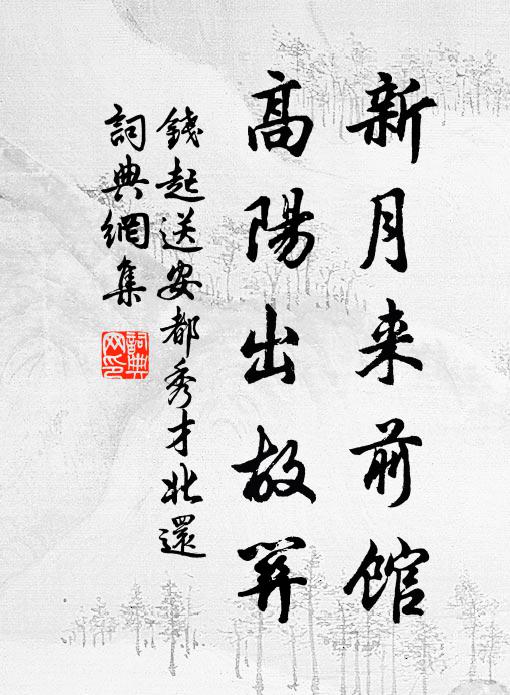 新月来前館
高陽出故關
錢起送安都秀才北還
詞典網集
詞典
网印